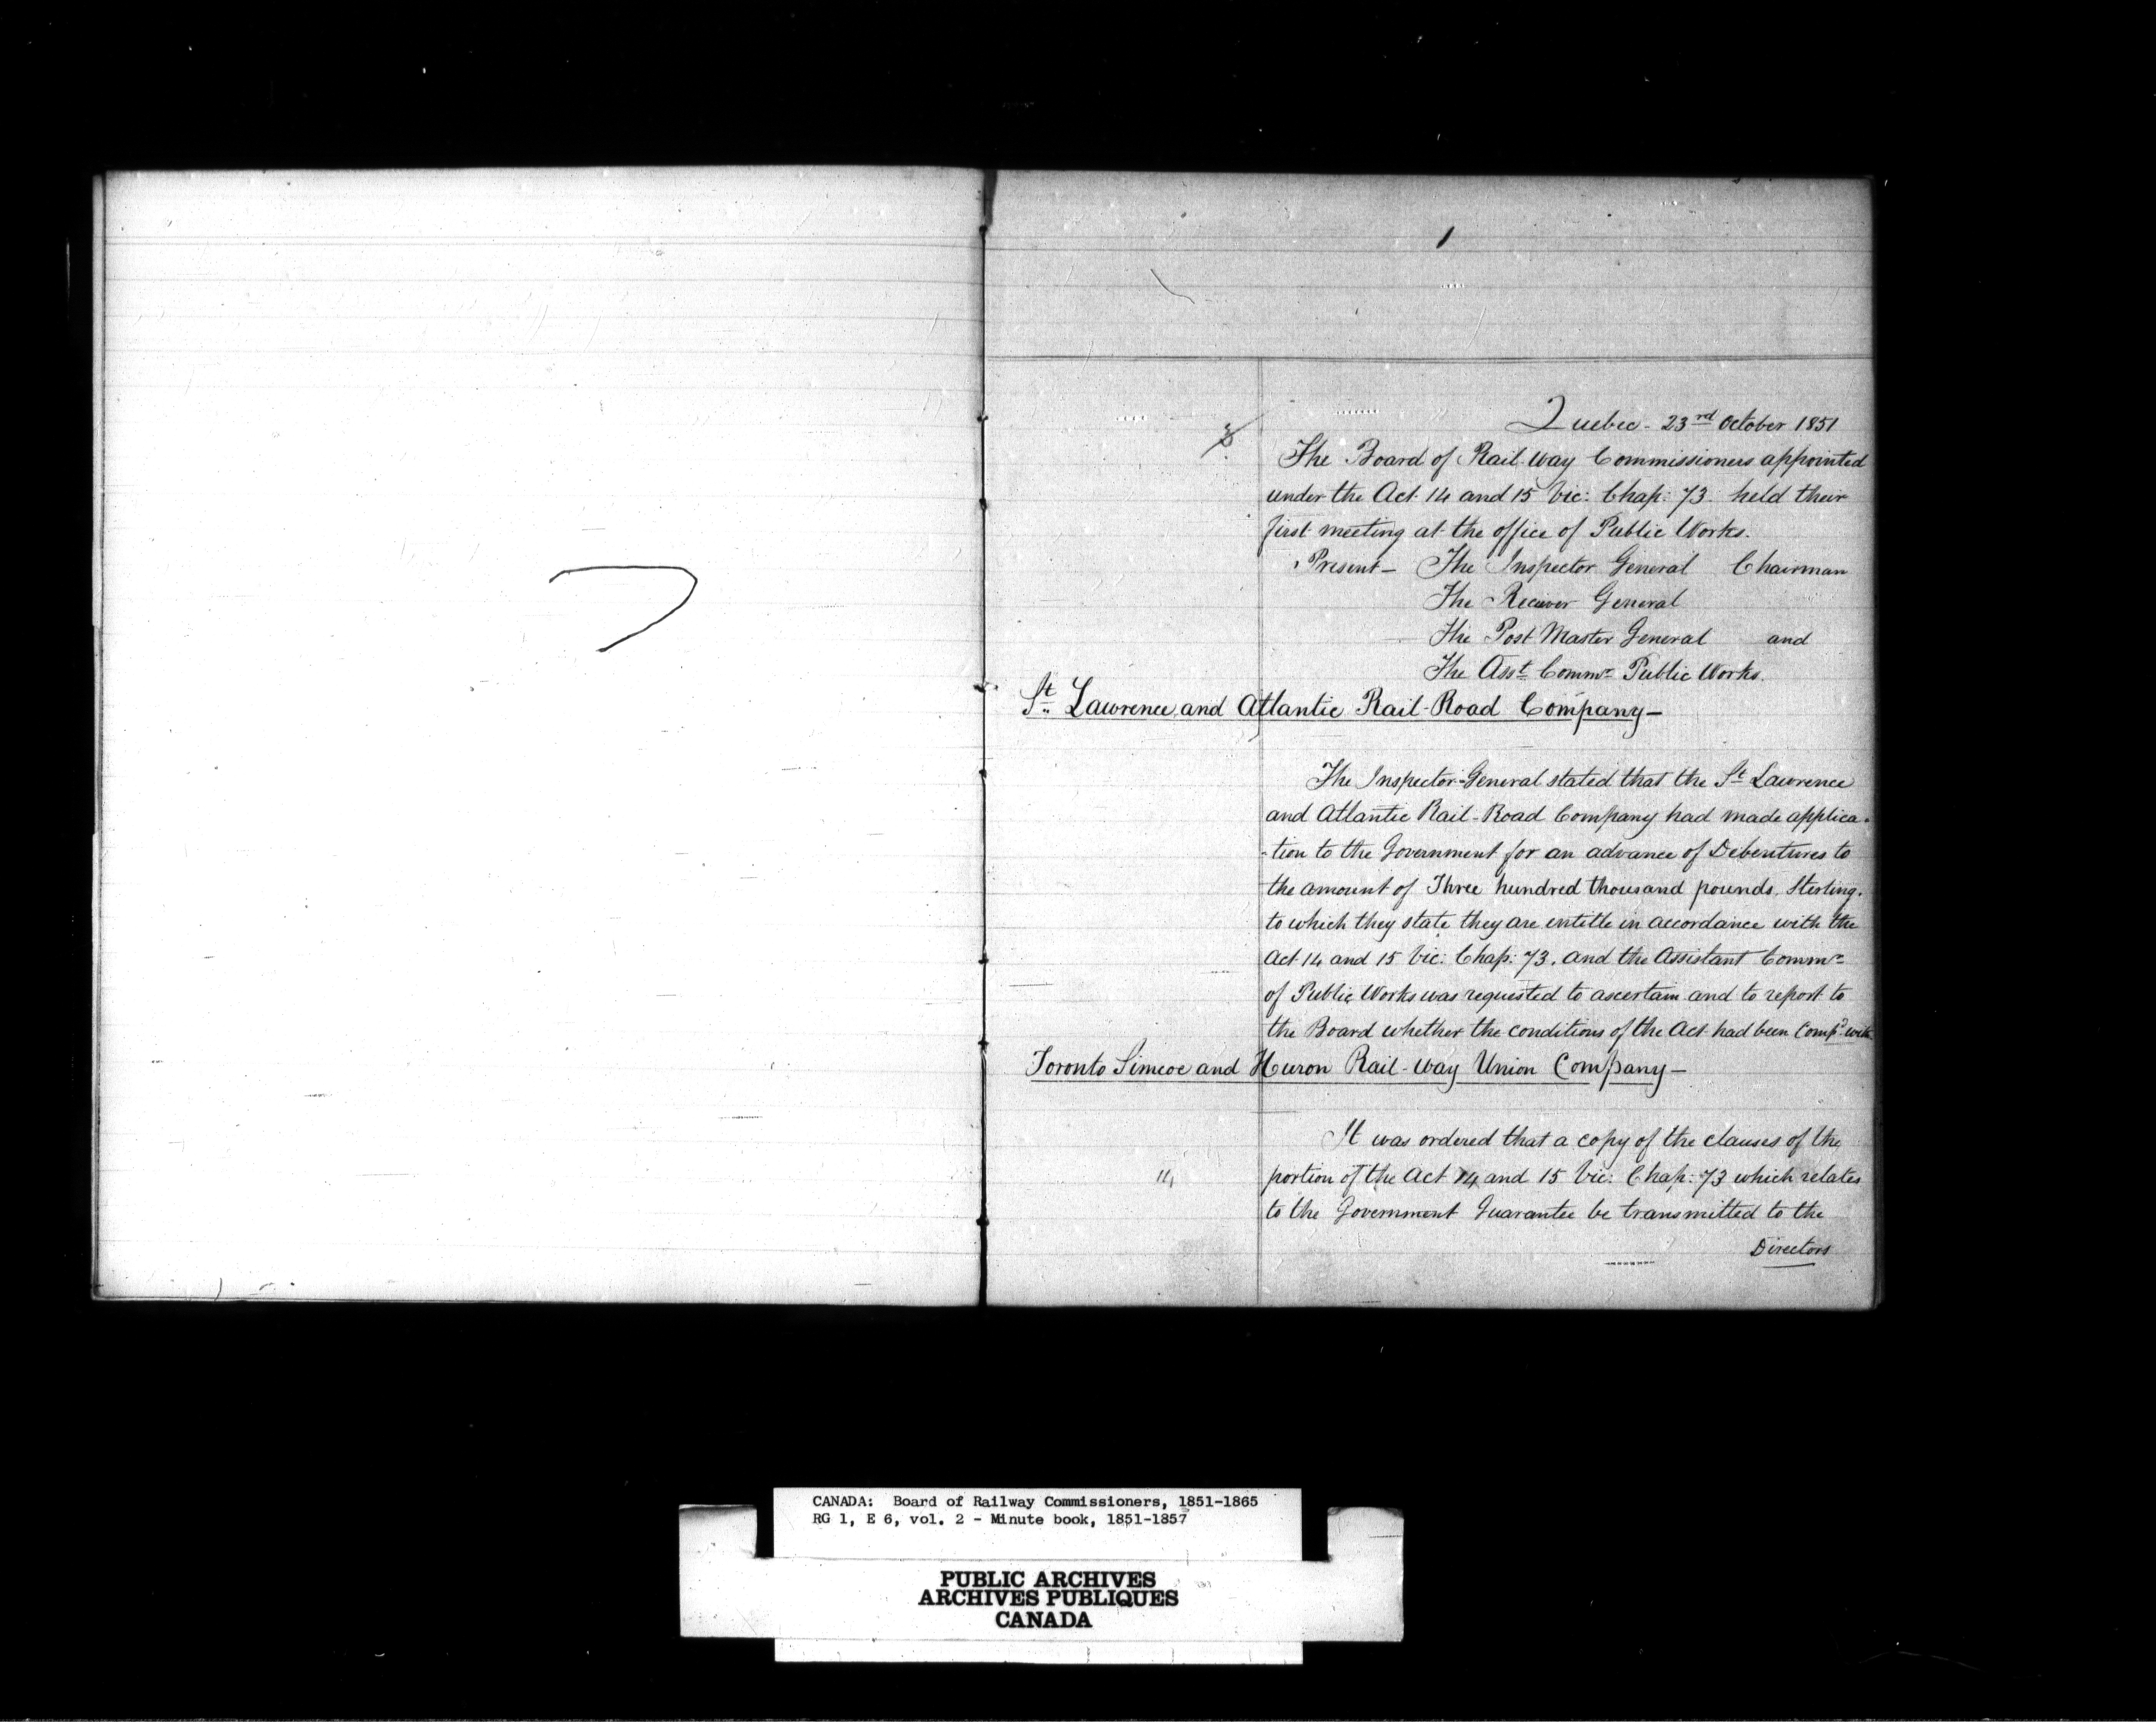 1
Quebec - 23rd October 1851
The Board of Rail-way Commissioners appointed
under the Act 14 and 15 Vic: Chap: 73. held their
first meeting at the office of Public Works.
Present - The Inspector General Chairman
The Reciever General
The Post Master General and
The Asst Commr Public Works.
St Lawrence and Atlantic Rail-Road Company -
The Inspector-General stated that the St Lawrence
and Atlantic Rail-Road Company had made applica-
-tion to the Government for an advance of Debentures to
the amount of Three hundred thousand pounds, Sterling.
to which they state they are entitle in accordance with the
Act 14 and 15 Vic: Chap: 73. and the Assistant Commr
of Public Works was requested to ascertain and to report to
the Board whether the conditions of the Act had been Compd with
Toronto Simcoe and Huron Rail-way Union Company -
It was ordered that a copy of the clauses of the
14 portion of the Act 14 and 15 Vic: Chap: 73 which relates
to the Government Guarantee be transmitted to the
Directors
CANADA: Board of Railway Commissioners, 1851-1865
RG 1, E 6, vol. 2 - Minute book, 1851-1857
PUBLIC ARCHIVES
ARCHIVES PUBLIQUES
CANADA